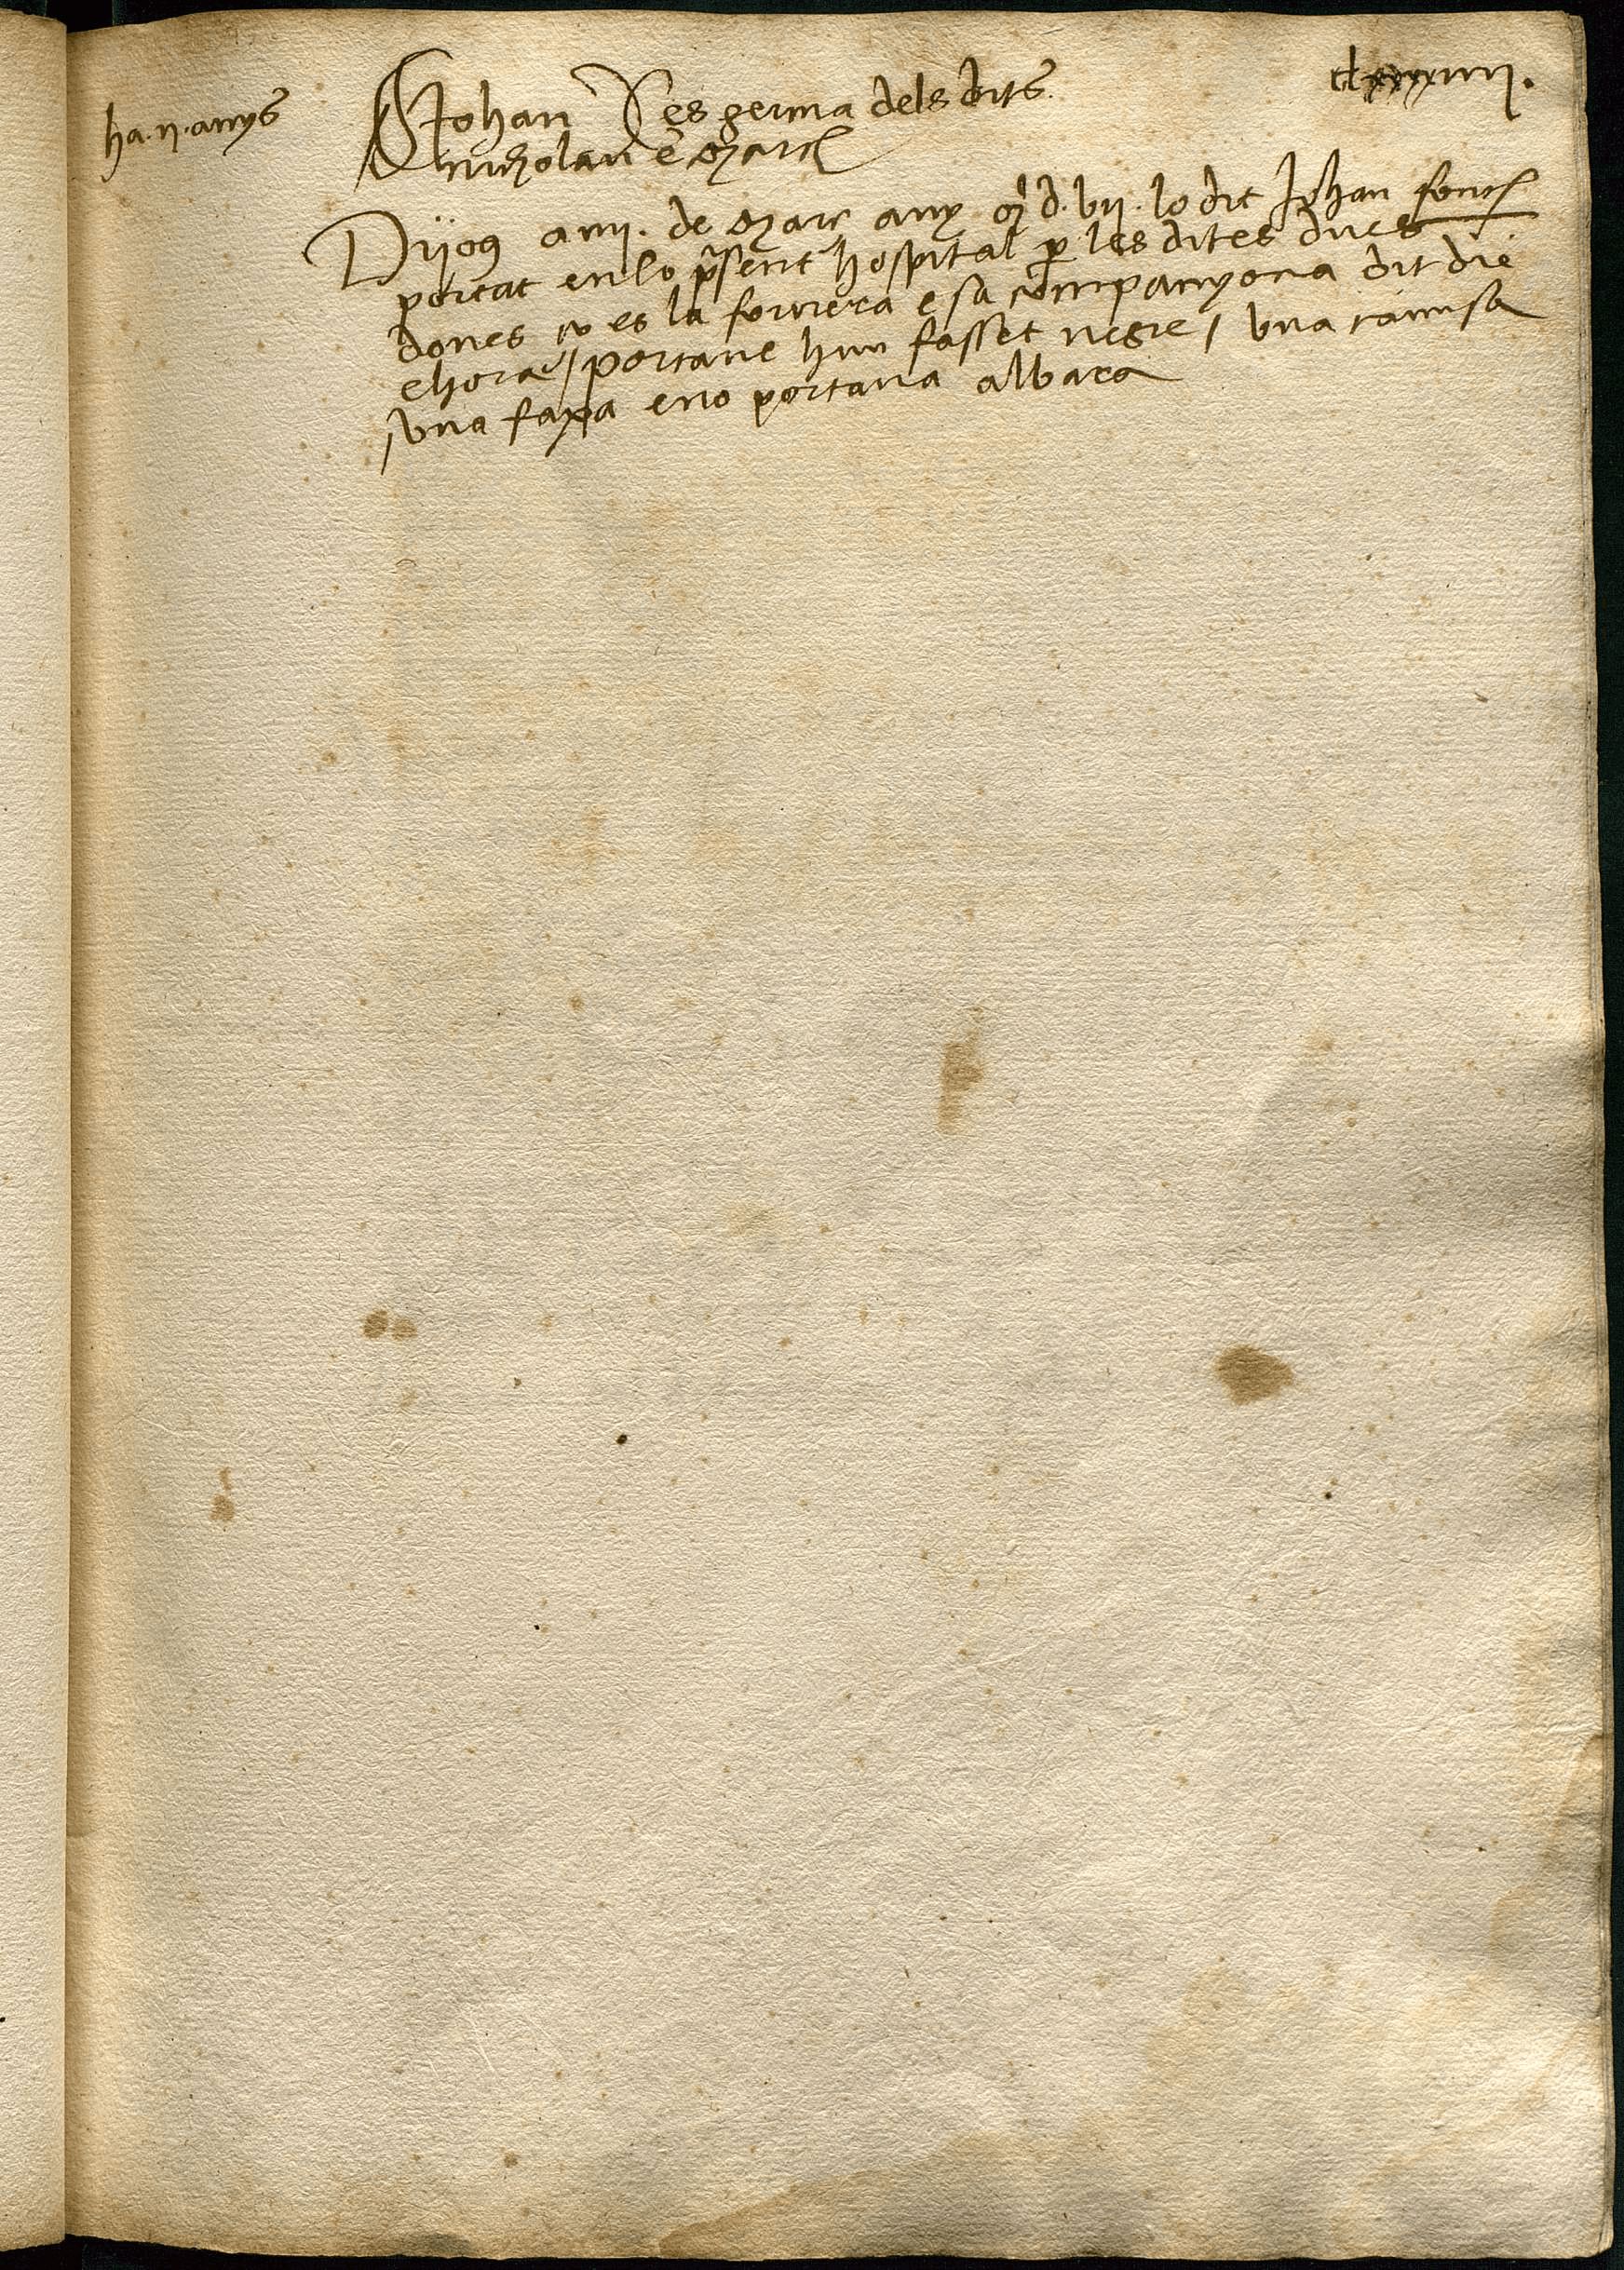 clxxxxiiij.
ha .ij. anys
Johan es germa dels dits
nicholau e març
Dijous a iiij. de março any M d. vij. lo dit Johan fonch
portat en lo p̃sent hospital p les dites dues
dones ço es la fornera e sa companyona dit die
e hora / portave hun sasset negre / vna camisa
/ vna faxa e no portava albara